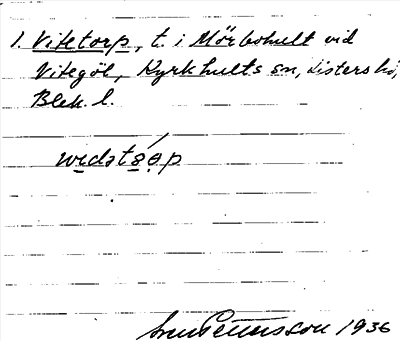 1. Vitetorp, t. i Mörbohult vid
Vitegöl, Kyrkhults sn, Listers hd,
Blek. l.
1936